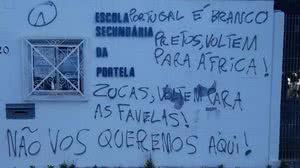 ESCOLA PORTUGAL É BRANCO
SECUNDÁRIA PRETOS, VOLTEM
DA PARA ÁFRICA!
PORTELA
20
ZUCAS, VOLTEM PARA
AS FAVELAS!
NÃO VOS QUEREMOS AQUI!